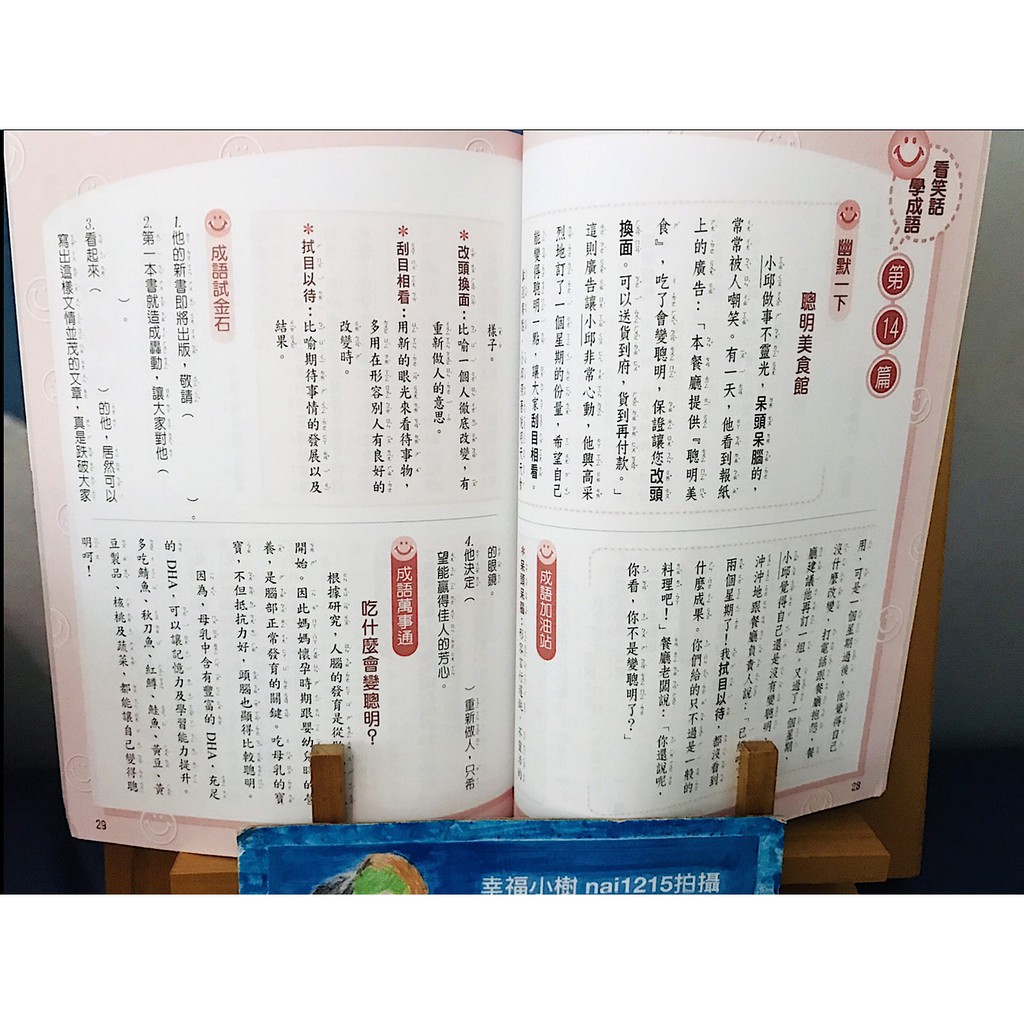 看笑話
學成語
第14篇
幽默一下
聰明美食館
小邱做事不靈光，呆頭呆腦的，
常常被人嘲笑。有一天，他看到報紙
上的廣告：「本餐廳提供『聰明美
食』，吃了會變聰明，保證讓您改頭
換面。可以送貨到府，貨到再付款。」
這則廣告讓小邱非常心動，他興高采
烈地訂了一個星期的份量，希望自己
能變得聰明一點，讓大家刮目相看。
用，可是一個星期過後，他覺得自己
沒什麼改變，打電話跟餐廳抱怨。餐
廳建議他再訂一組。又過了一個星期，
小邱覺得自己還是沒有變聰明
沖沖地跟餐廳負責人說：「己
兩個星期了！我拭目以待，都沒看到
什麼成果。你們給的只不過是一般的
料理吧！」餐廳老闆說：「你還說呢，
你看，你不是變聰明了？」
成語加油站
28
樣子。
＊改頭換面：比喻一個人徹底改變，有
重新做人的意思。
＊刮目相看：用新的眼光來看待事物，
多用在形容別人有良好的
改變時。
＊拭目以待：比喻期待事情的發展以及
結果。
成語試金石
1.他的新書即將出版，敬請（　　）。
2.第一本書就造成轟動，讓大家對他（
　　）。
3.看起來（　　）的他，居然可以
寫出這樣文情並茂的文章，真是跌破大家
的眼鏡。
4.他決定（　　）重新做人，只希
望能贏得佳人的芳心。
成語萬事通
吃什麼會變聰明？
根據研究，人腦的發育是從
開始。因此媽媽懷孕時期跟嬰幼兒時的營
養，是腦部正常發育的關鍵。吃母乳的寶
寶，不但抵抗力好，頭腦也顯得比較聰明。
因為，母乳中含有豐富的DHA，充足
的DHA，可以讓記憶力及學習能力提升。
多吃鯖魚、秋刀魚、紅鱒、鮭魚、黃豆、黃
豆製品、核桃及蔬菜，都能讓自己變得聰
明呵！
29
幸福小樹 nai1215拍攝